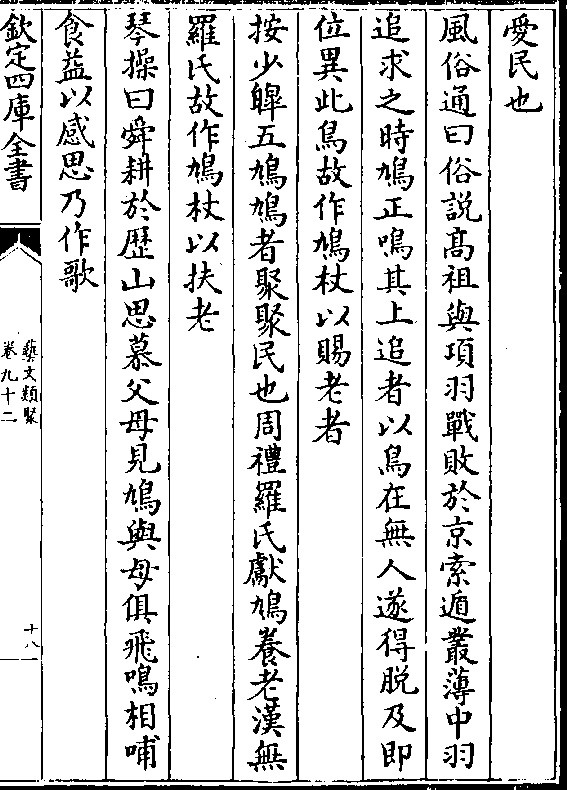 愛民也
風俗通曰俗説髙祖與項羽戰敗於京索遁叢薄中羽
追求之時鳩正鳴其上追者以鳥在無人遂得脱及即
位異此鳥故作鳩杖以賜老者
按少皥五鳩鳩者聚聚民也周禮羅氏獻鳩養老漢無
羅氏故作鳩杖以扶老
琴操曰舜耕於歴山思慕父母見鳩與母俱飛鳴相哺
食益以感思乃作歌
欽定四庫全書
藝文類聚
卷九十二
十八